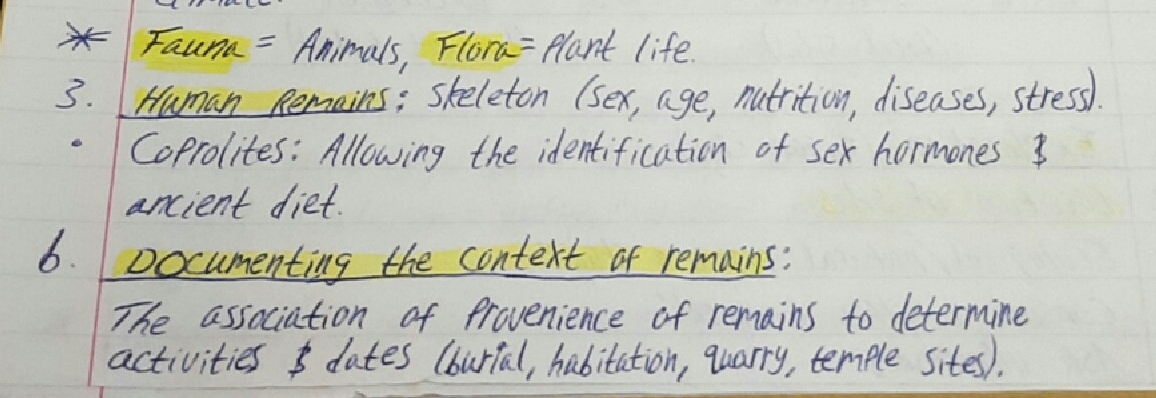 * Fauna = Animals, Flora = Plant life.
3. Human Remains: Skeleton (sex, age, nutrition, diseases, stress).
• Coprolites: Allowing the identification of sex hormones &
ancient diet.
6. Documenting the context of remains:
The association of Provenience of remains to determine
activities & dates (burial, habitation, quarry, temple sites).